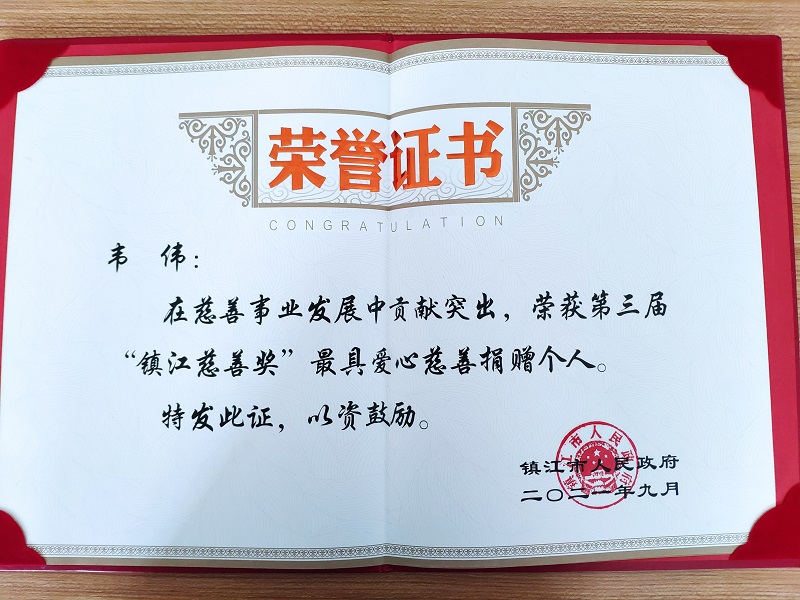 荣誉证书
CONGRATULATION
韦 伟：
在慈善事业发展中贡献突出，荣获第三届
“镇江慈善奖”最具爱心慈善捐赠个人。
特发此证，以资鼓励。
镇江市人民政府
二〇二一年九月
镇江市人民政府